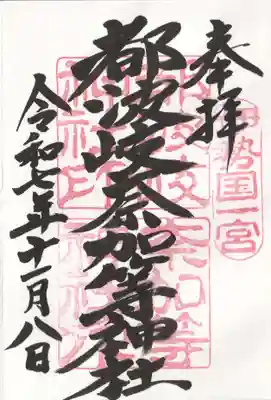 奉拝
伊勢国一宮
都波岐奈加等神社
令和七年十一月八日